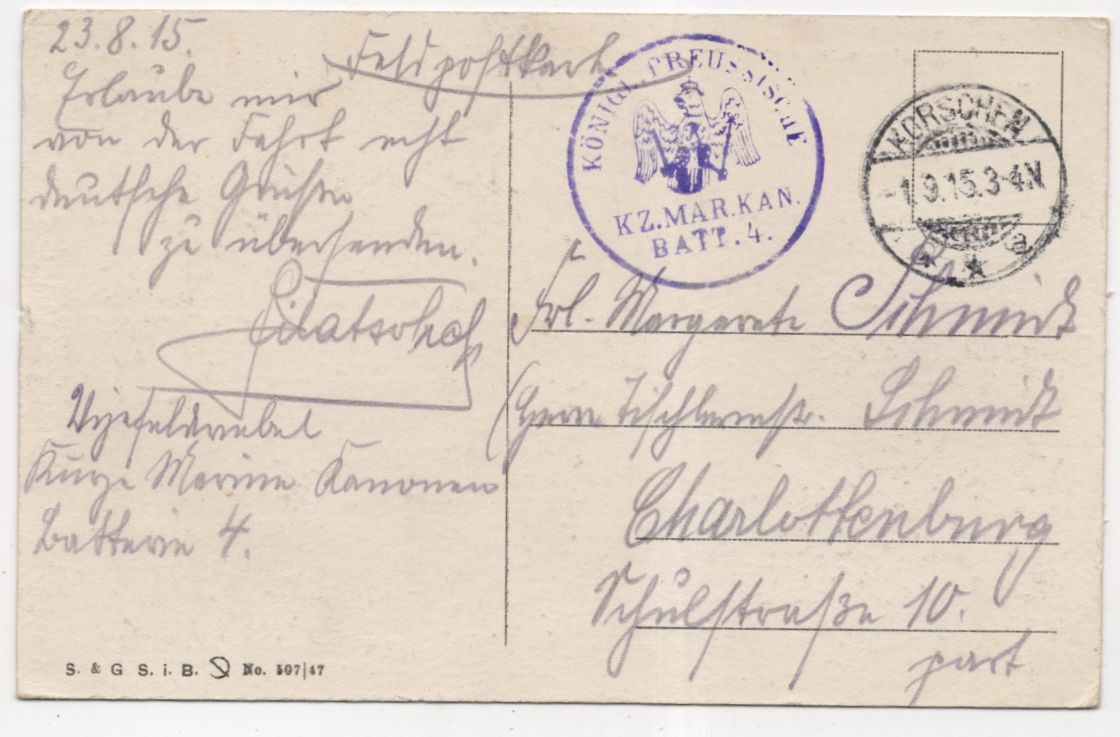 23.8.15.
Feldpostkarte
Erlaube mir
von der Fahrt echt
deutsche Grüße
zu übersenden.
Vizefeldwebel
Kurze Marine Kanonen
Batterie 4.
KÖNIGL. PREUSSISCHE
KZ.MAR.KAN.
BATT. 4.
KORSCHEN
-1.9.15.3-4.N
* * a
Frl. Margarete Schmidt
Herrn Tischlermstr. Schmidt
Charlottenburg
Schulstraße 10.
part
S. & G. S. i. B. No. 507/47